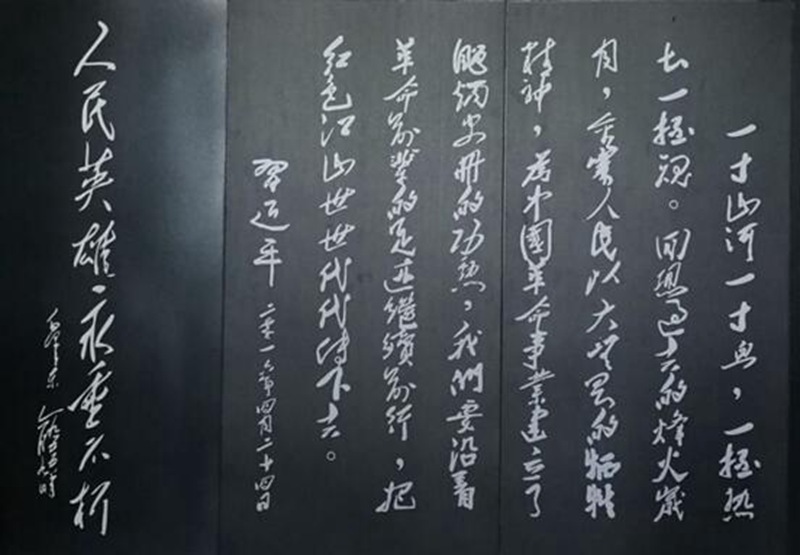 一寸山河一寸血，一抔热
土一抔魂。回想过去的烽火歲
月，金寨人民以大无畏的牺牲
精神，为中國革命事業建立了
彪炳史册的功勋，我們要沿着
革命前辈的足迹繼續前行，把
红色江山世世代代传下去。
習近平
二零一六年四月二十四日
人民英雄永垂不朽